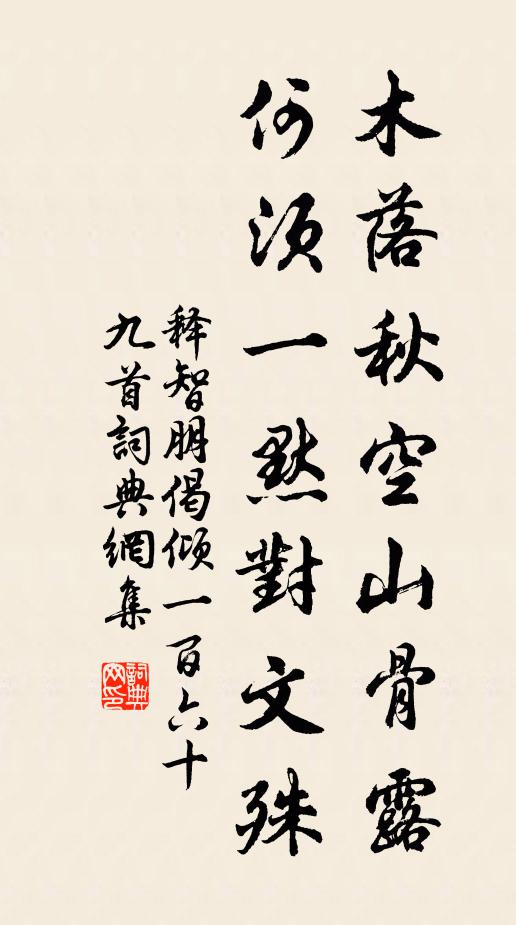 木落秋空山骨露
何須一默對文殊
释智朋偈傾一百六十
九首詞典網集
詞典網印